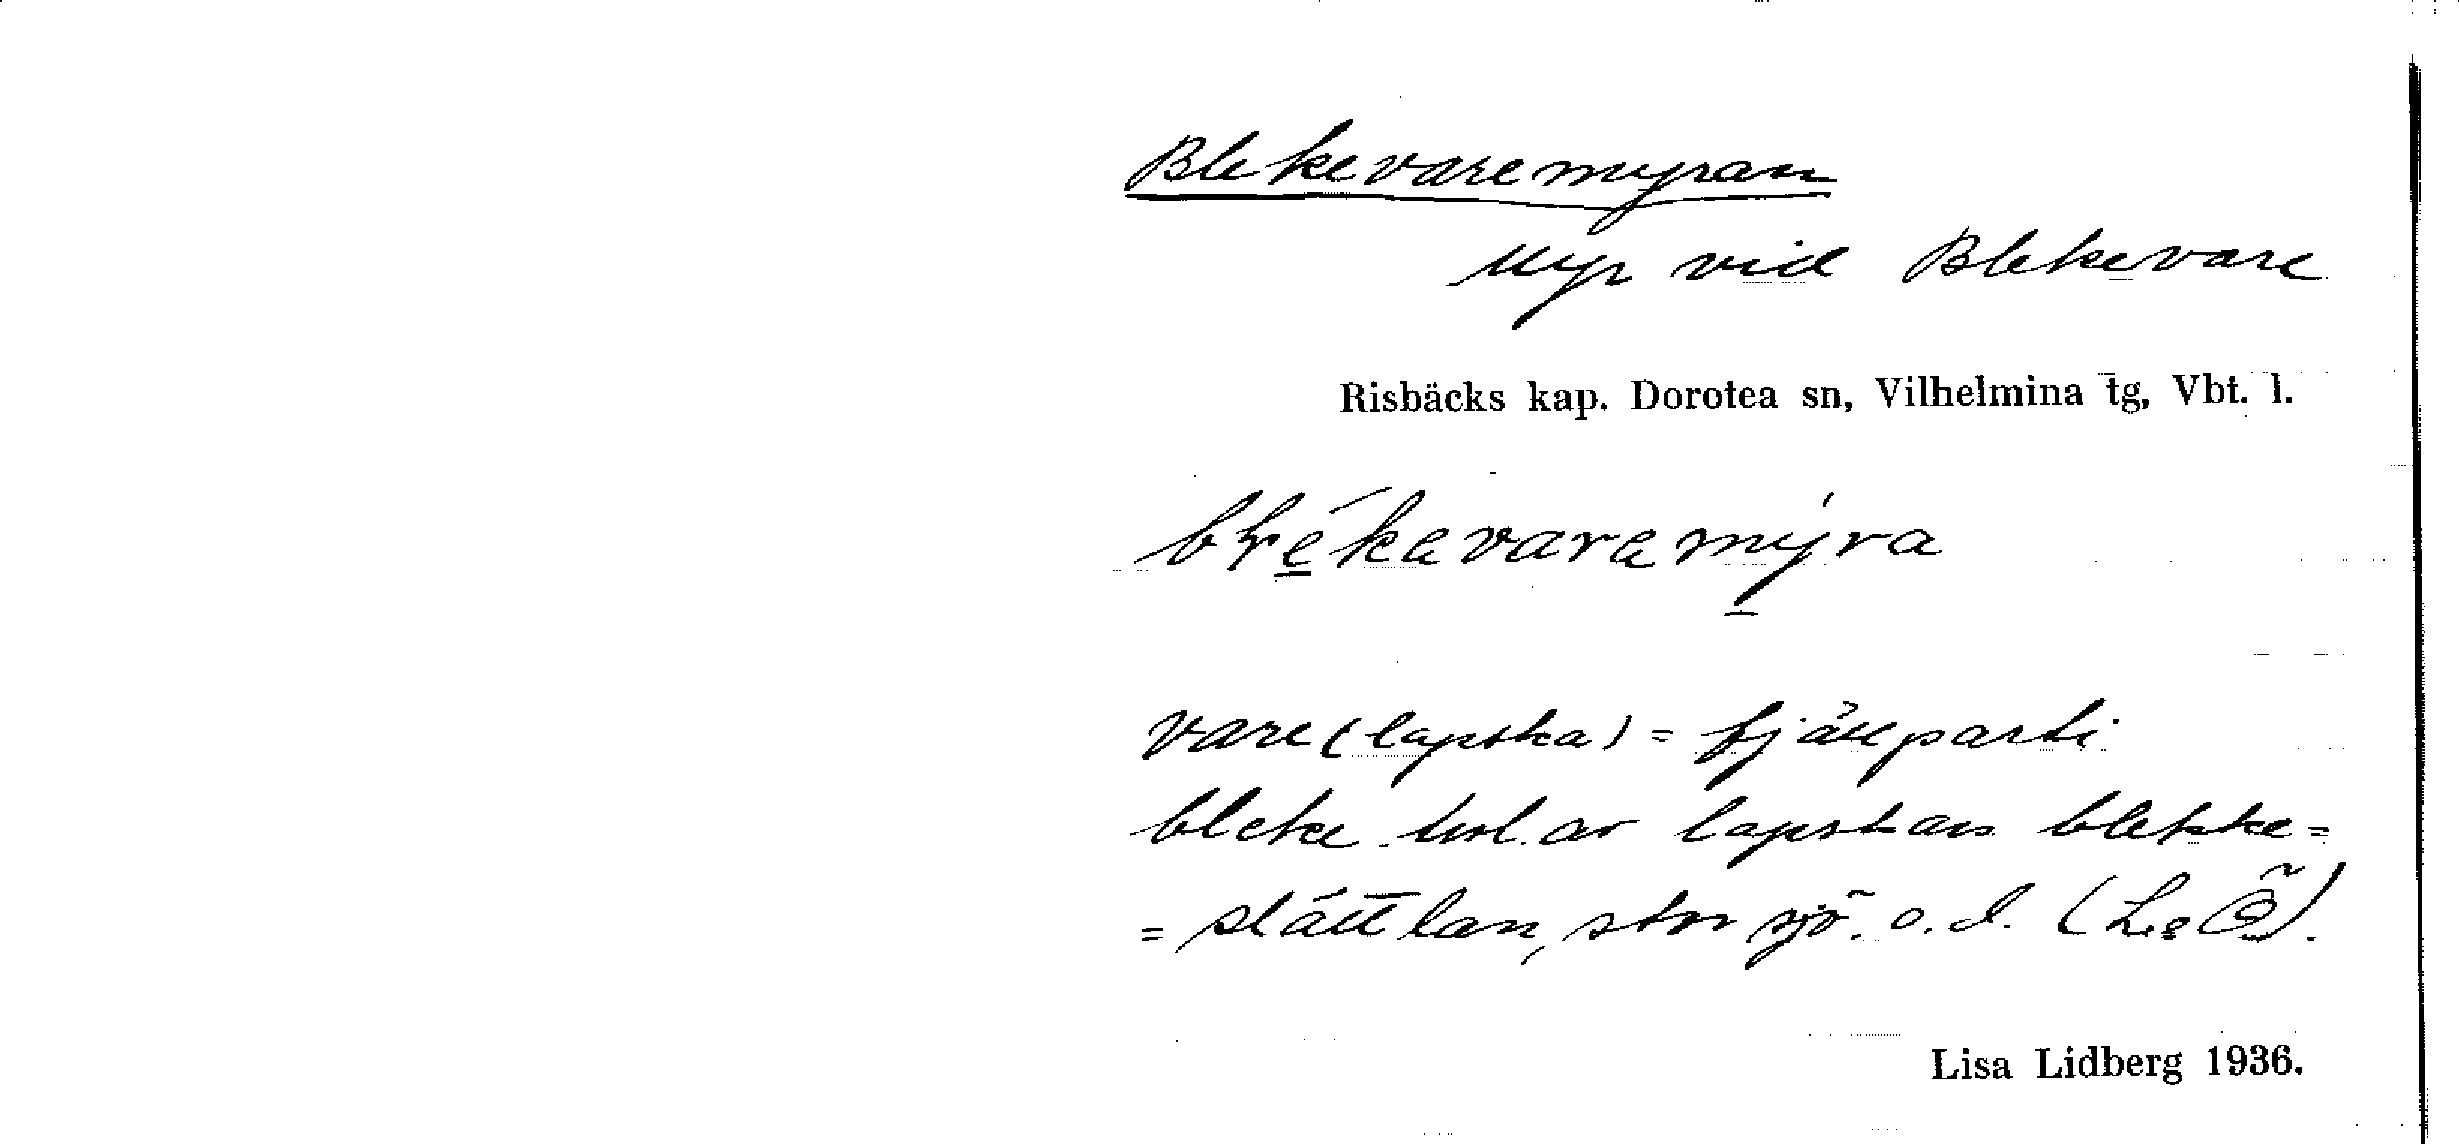 Blekevaremyran
Myr vid Blekevare
Risbäcks kap. Dorotea sn, Vilhelmina tg, Vbt. l.
vare (lapska) = fjällparti
bleke trol. av lapskans blekke =
= slätt lan, stor sjö. o. d. (L. o Ö).
Lisa Lidberg 1936.